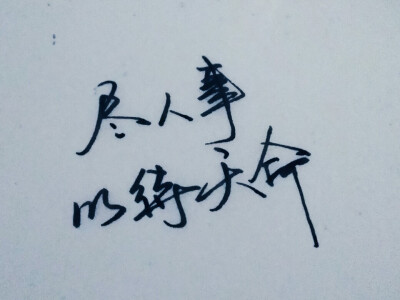 尽人事
以待天命